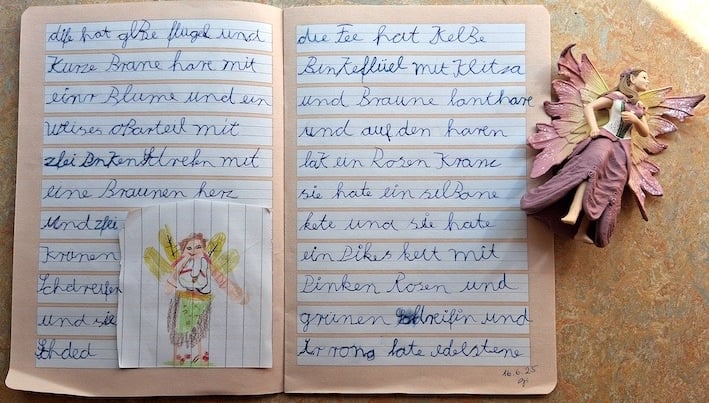 dife hat glBe flügel und
Kurze Brane hare mit
einr Blume und ein
weises oBarteil mit
zfei mit
eine Braunen herz
und zfei
Kranen
Schdreifen
und sie
Schded
die Fee hat KelBe
BinKeflüel mit Klitza
und Braune lanthare
und auf den haren
hat ein Rosen Kranz
sie hate ein silBane
kete und sie hate
ein Dikes keit mit
Pinken Rosen und
grünen Schdreifin und
Ir hate edelstene
16.6.25